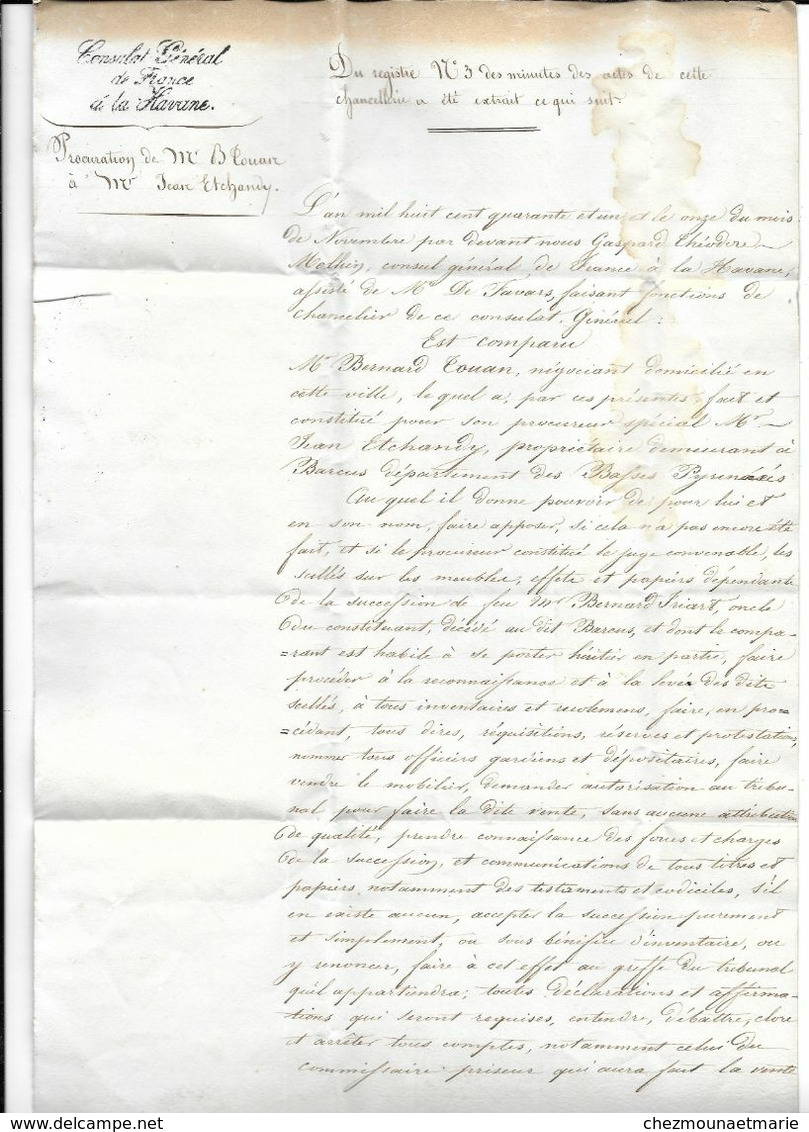 Consulat Général
de France
à la Havane.
Procuration de Mr B Couan
à Mr Jean Etchandy.
Du registre No 3 des minutes des actes de cette
chancellerie a été extrait ce qui suit.
L'an mil huit cent quarante et un et le onze du mois
de Novembre par devant nous Gaspard Théodore
Mollien, consul général de France à la Havane,
assisté de Mr De Tavars, faisant fonctions de
chancelier de ce consulat Général :
Est comparu
Mr Bernard Couan, négociant domicilié en
cette ville, le quel a, par ces présentes, fait et
constitué pour son procureur spécial Mr
Jean Etchandy, propriétaire demeurant à
Barcus département des Basses Pyrenées
Au quel il donne pouvoir de pour lui et
en son nom, faire apposer, si cela n'a pas encore été
fait, et si le procureur constitué le juge convenable, les
scellés sur les meubles, effets et papiers dépendants
de la succession de feu Mr Bernard Iriart, oncle
du constituant, décédé au dit Barcus, et dont le compa-
=rant est habile à se porter héritier en partie, faire
procéder à la reconnaissance et à la levée des dits
scellés, à tous inventaires et recolemens, faire, en pro=
=cédant, tous dires, réquisitions, réserves et protestations,
nommer tous officiers gardiens et dépositaires, faire
vendre le mobilier, demander autorisation au tribu-
nal pour faire la dite vente, sans aucune attribution
de qualité, prendre connaissance des forces et charges
de la succession, et communications de tous titres et
papiers, notamment des testaments et codiciles, s'il
en existe aucun, accepter la succession purement
et simplement, ou sous bénéfice d'inventaire, ou
y renoncer, faire à cet effet au greffe du tribunal
qu'il appartiendra, toutes déclarations et affirma-
tions qui seront requises, entendre, débattre, clore
et arrêter tous comptes, notamment celui du
commissaire priseur qui aura fait la vente
chezmounaetmarie